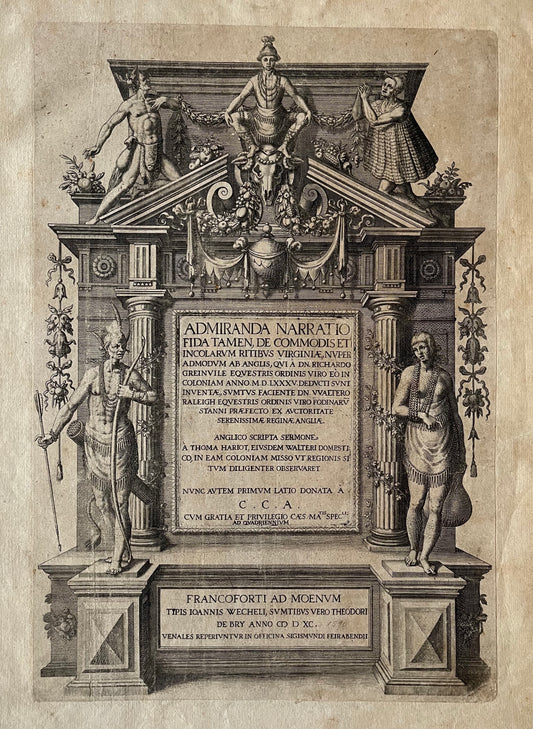 ADMIRANDA NARRATIO
FIDA TAMEN, DE COMMODIS ET
INCOLARVM RITIBVS VIRGINIÆ, NVPER
ADMODVM AB ANGLIS, QVI À DN. RICHARDO
GREINVILE EQVESTRIS ORDINIS VIRO EÒ IN
COLONIAM ANNO. M.D.LXXXV. DEDVCTI SVNT
INVENTÆ, SVMTVS FACIENTE DN. VVALTERO
RALEIGH EQVESTRIS ORDINIS VIRO FODINARV̄
STANNI PRÆFECTO EX AVCTORITATE
SERENISSIMÆ REGINÆ ANGLIÆ.
ANGLICO SCRIPTA SERMONE
À THOMA HARIOT, EIVSDEM WALTERI DOMESTI,
CO, IN EAM COLONIAM MISSO VT REGIONIS SI
TVM DILIGENTER OBSERVARET
NVNC AVTEM PRIMVM LATIO DONATA À
C. C. A.
CVM GRATIA ET PRIVILEGIO CÆS. MA.TIS SPEC.LI
AD QUADRIENNIVM
FRANCOFORTI AD MOENVM
TYPIS IOANNIS WECHELI, SVMTIBVS VERO THEODORI
DE BRY ANNO CIƆ D XC. 1590
VENALES REPERIVNTVR IN OFFICINA SIGISMVNDI FEIRABENDII